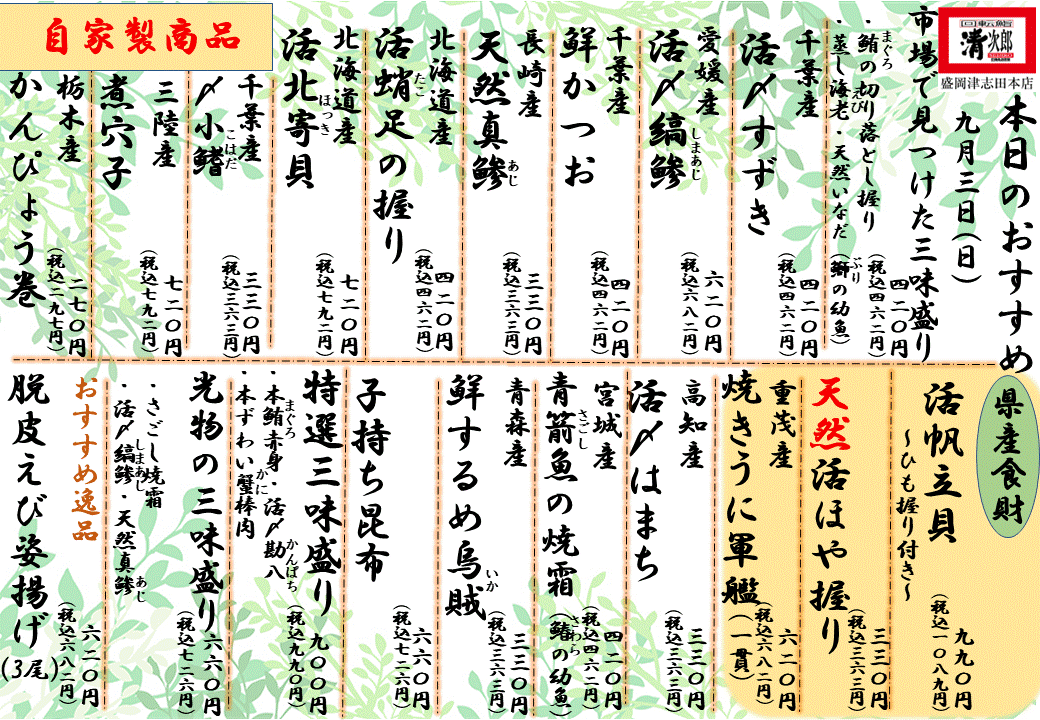 回転鮨
清次郎
盛岡津志田本店
本日のおすすめ
九月三日(日)
市場で見つけた三味盛り
・鮪の切り落とし握り
まぐろ
・蒸し海老・天然いなだ(鰤の幼魚)
えび
ぶり
四二〇円
(税込四六二円)
千葉産
活〆すずき
四二〇円
(税込四六二円)
愛媛産
活〆縞鯵
しまあじ
六二〇円
(税込六八二円)
千葉産
鮮かつお
四二〇円
(税込四六二円)
長崎産
天然真鯵
あじ
三三〇円
(税込三六三円)
北海道産
活蛸足の握り
たこ
四二〇円
(税込四六二円)
北海道産
活北寄貝
ほっき
七二〇円
(税込七九二円)
自家製商品
千葉産
〆小鰭
こはだ
三三〇円
(税込三六三円)
三陸産
煮穴子
七二〇円
(税込七九二円)
栃木産
かんぴょう巻
二七〇円
(税込二九七円)
県産食財
活帆立貝
~ひも握り付き~
九九〇円
(税込一〇八九円)
天然活ほや握り
三三〇円
(税込三六三円)
重茂産
焼きうに軍艦(一貫)
六二〇円
(税込六八二円)
高知産
活〆はまち
三三〇円
(税込三六三円)
宮城産
青箭魚の焼霜(鰆の幼魚)
さごし
さわら
四二〇円
(税込四六二円)
青森産
鮮するめ烏賊
いか
三三〇円
(税込三六三円)
子持ち昆布
六六〇円
(税込七二六円)
特選三味盛り
九〇〇円
(税込九九〇円)
・本鮪赤身・活〆勘八
まぐろ
かんぱち
・本ずわい蟹棒肉
かに
光物の三味盛り
六六〇円
(税込七二六円)
・さごし焼霜
・活〆縞鯵・天然真鯵
しまあじ
あじ
おすすめ逸品
脱皮えび姿揚げ(3尾)
六二〇円
(税込六八二円)